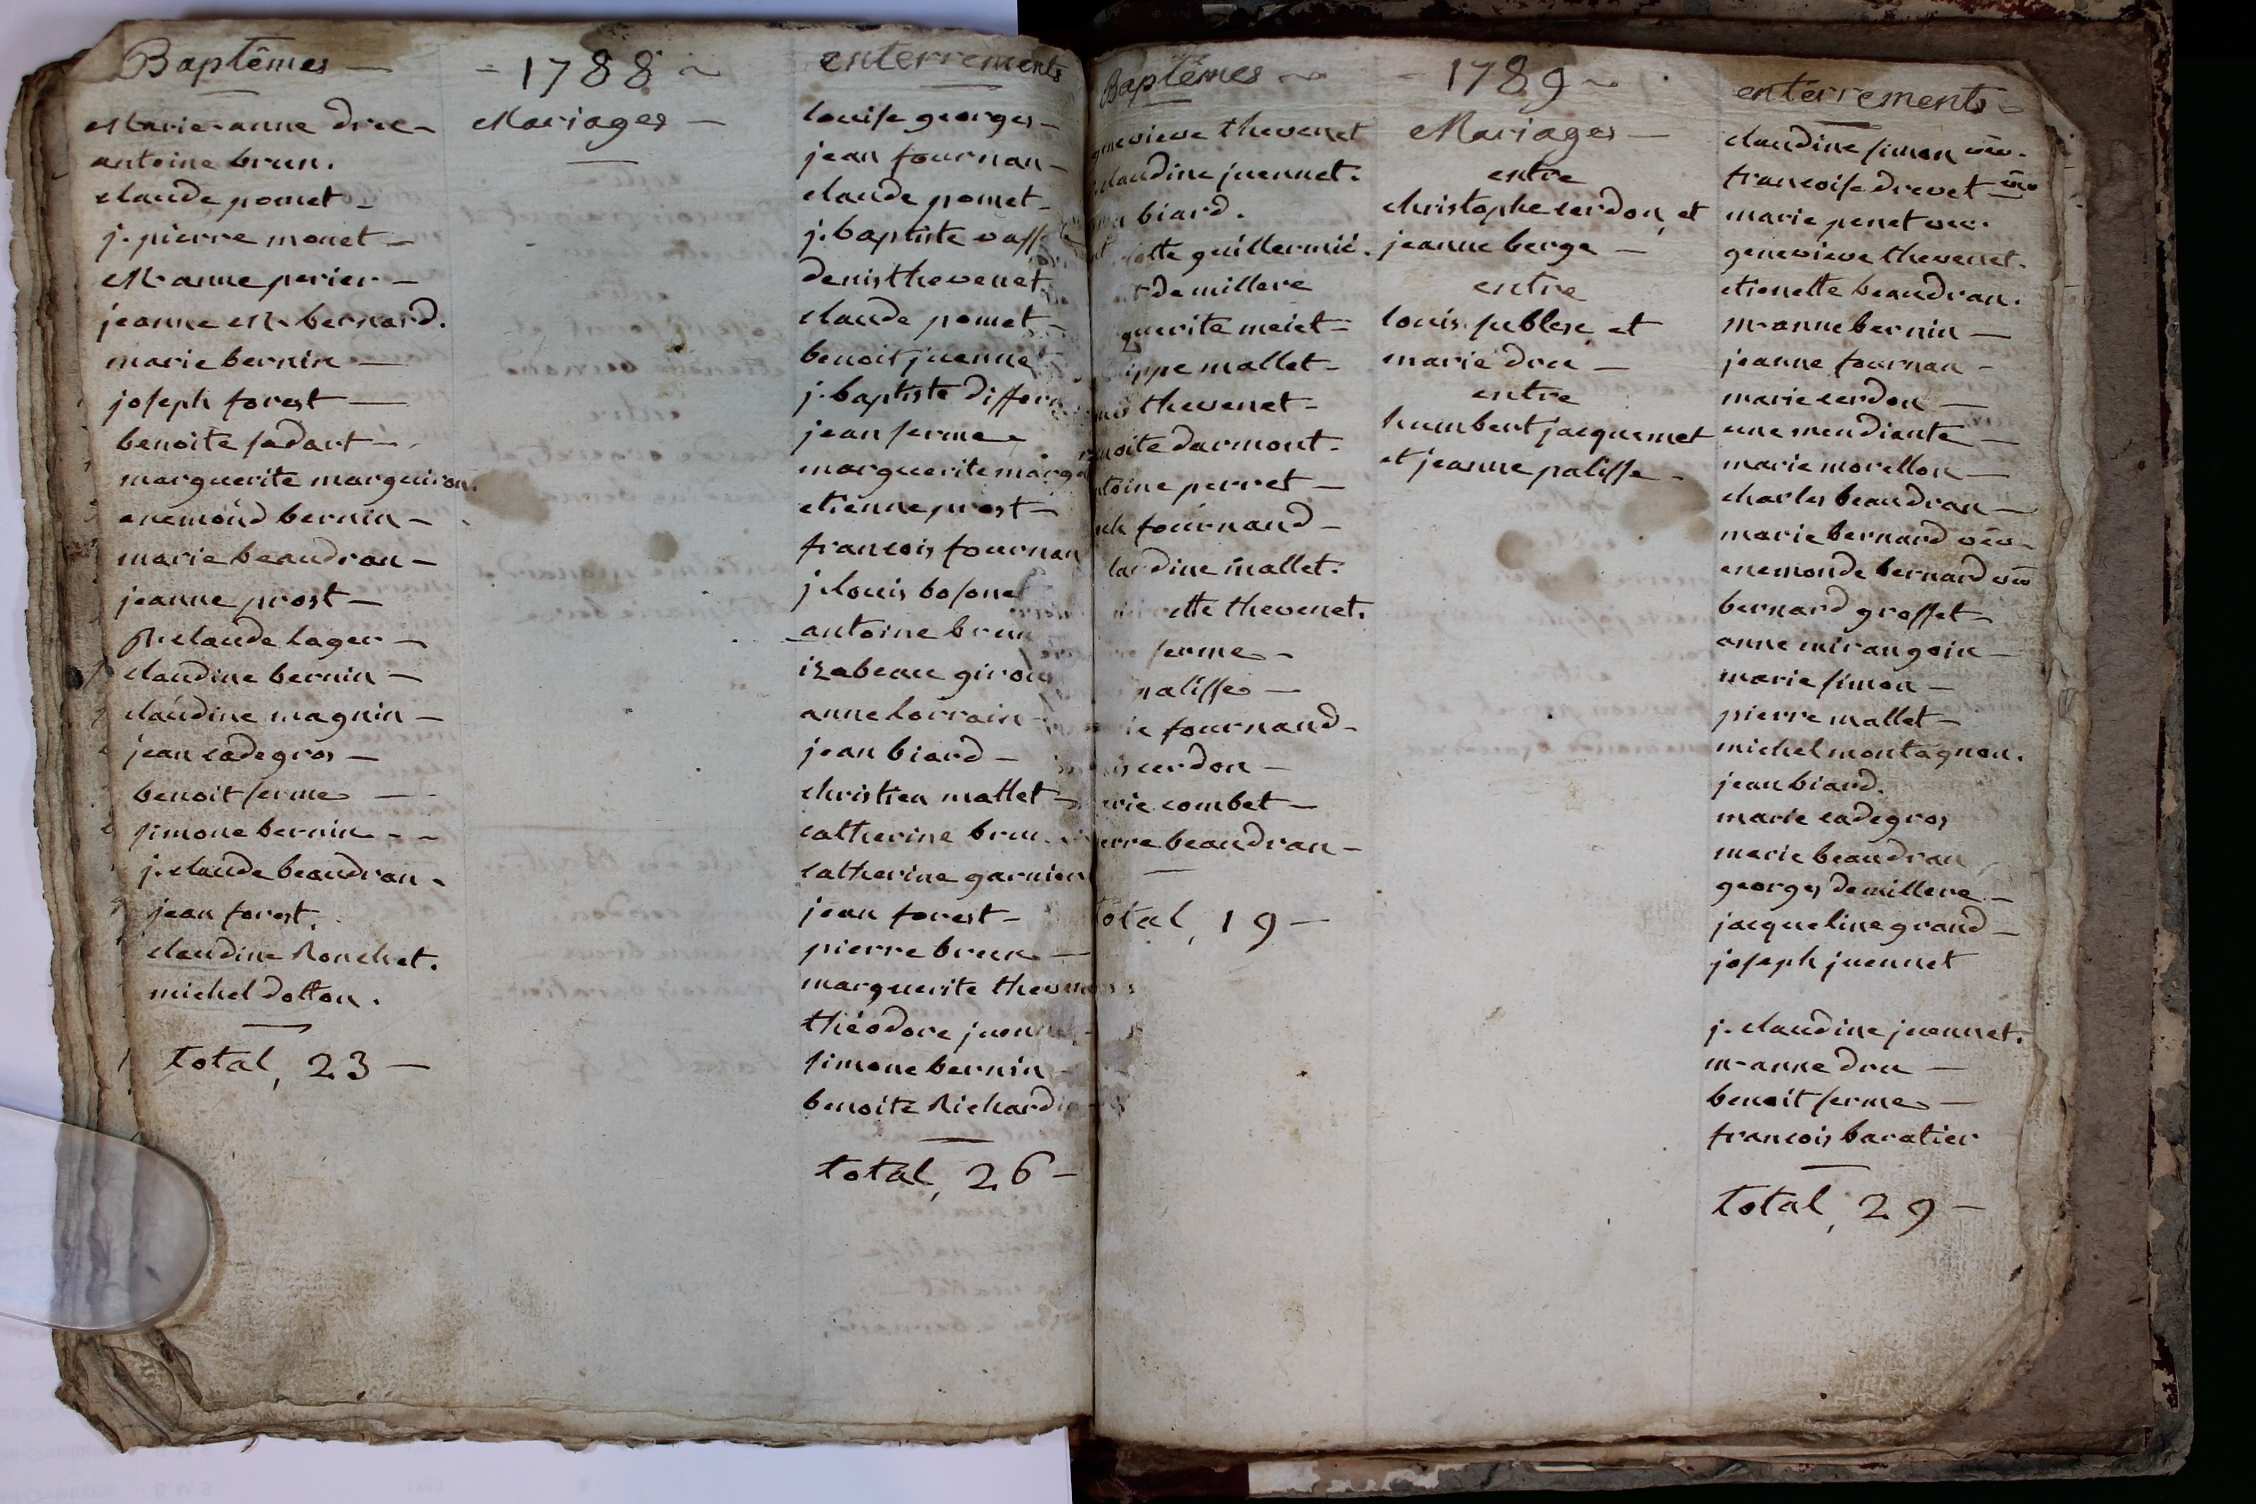 Baptêmes —
marie anne dree -
antoine brun.
claude pomet -
j. pierre monet -
M. anne perier -
jeanne M. bernard.
marie bernin —
joseph forest —
benoite sadart -
marguerite marguiron.
enemond bernin -
marie beaudran -
jeanne prost -
claude lager -
claudine bernin -
claudine magnin -
jean cadegros -
benoit serme —
simone bernin - -
j. claude beaudran -
jean forest.
claudine Ronchet.
michel dotton.
total, 23 —
= 1788 ~
Mariages —
enterrements
louise georges -
jean fournan -
claude pomet -
j. baptiste
denis thevenet
claude pomet
benoit juennet
j. baptiste
jean serme
marguerite
etienne prost -
francois fournan
j. louis
antoine brun
izabeau
anne lorrain
jean biard -
christien mallet -
catherine brun
catherine garnier
jean forest -
pierre brun —
marguerite
théodore
simone bernin
benoite
total, 26 -
Baptêmes ~
genevieve thevenet
claudine juennet.
biard.
guillermié.
demillere
meiet -
mallet -
thevenet -
darmont -
perret -
fournand -
mallet.
thevenet.
serme -
palisse -
fournand -
cerdon -
combet -
beaudran -
total, 19 —
= 1789 ~
Mariages —
entre
christophe cerdon, et
jeanne berge —
entre
louis sublese, et
marie dree —
entre
humbert jacquemet
et jeanne palisse -
enterrements
claudine simon vev.
francoise drevet vev
marie penet vev.
genevieve thevenet.
etienette beaudran.
m. anne bernin —
jeanne fournan -
marie cerdon —
une mendiante —
marie morellon —
charles beaudran —
marie bernard vev -
enemonde bernard vev
bernard grosset -
anne mirangoin —
marie simon -
pierre mallet -
michel montagnon.
jean biard.
marie cadegros
marie beaudran
georges demillere -
jacqueline grand -
joseph juennet
j. claudine juennet.
m. anne dru —
benoit serme —
francois baratier
total, 29 -